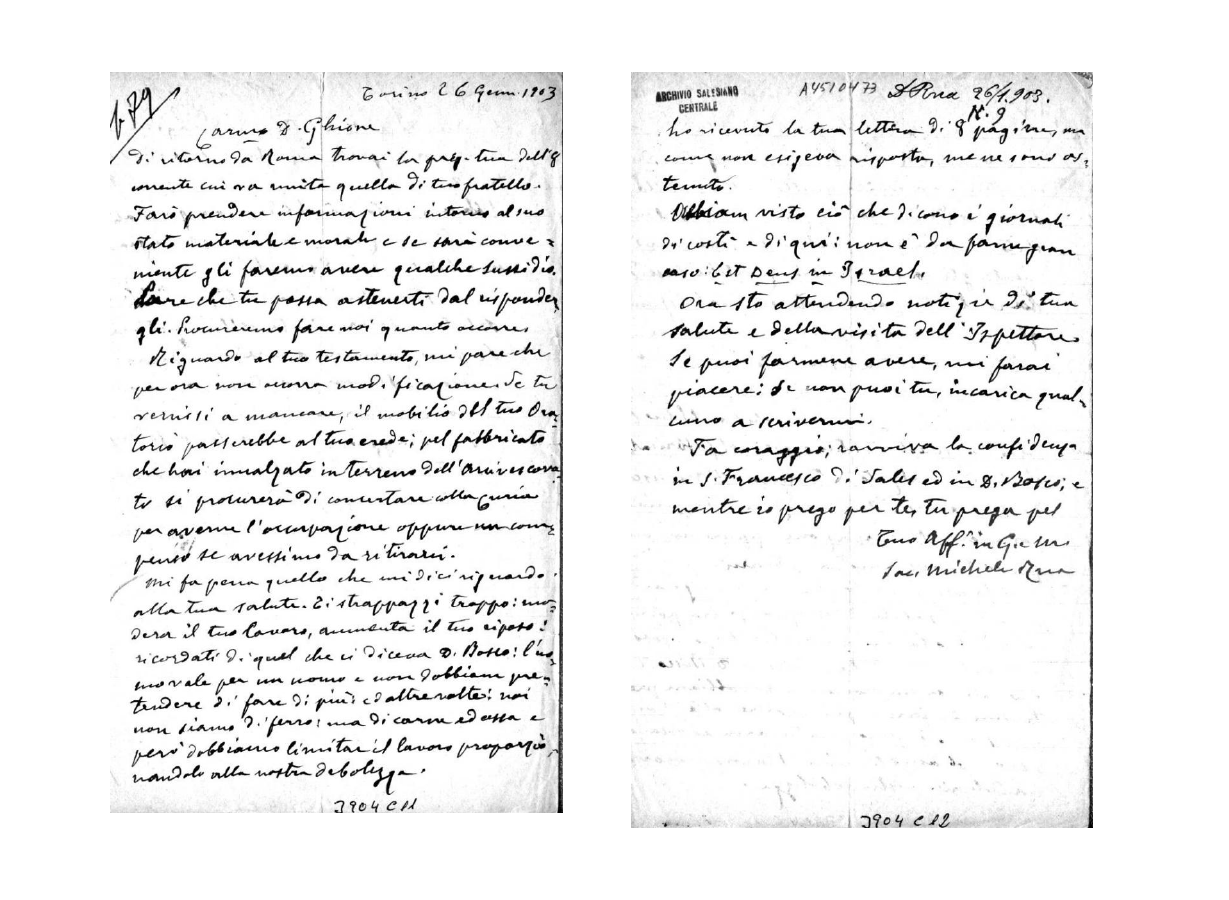 b 79
Torino 26 Genn. 1903
Carmo D. Ghione
di ritorno da Roma trovai la preg. tua dell'8
corrente cui va unita quella di tuo fratello.
Farò prendere informazioni intorno al suo
stato materiale e morale e se sarà conve=
niente gli faremo avere qualche sussidio.
Pare che tu possa astenerti dal risponder
gli. Procureremo fare noi quanto occorre.
Riguardo al tuo testamento, mi pare che
per ora non occorra modificazione. Se tu
venissi a mancare, il mobilio del tuo Ora=
torio passerebbe al tuo erede; pel fabbricato
che hai innalzato in terreno dell'arcivescova=
to si procurerà di concertare colla Curia
per averne l'occupazione oppure un com=
penso se avessimo da ritirarci.
Mi fa pena quello che mi dici riguardo
alla tua salute. Ti strappazzi troppo: mo=
dera il tuo lavoro, aumenta il tuo riposo:
ricordati di quel che ci diceva D. Bosco: l'uo=
mo vale per un uomo e non dobbiam pre=
tendere di fare di più; ed altre volte: noi
non siamo di ferro; ma di carne ed ossa e
però dobbiamo limitar il lavoro proporzio=
nandolo alla nostra debolezza.
3904 C 11
ARCHIVIO SALESIANO
CENTRALE
A4510473
D Rua 26/1.903.
N. 9
ho ricevuto la tua lettera di 8 pagine, ma
come non esigeva risposta, me ne sono as=
tenuto.
Abbiam visto ciò che dicono i giornali
di costì e di qui: non è da farne gran
caso: Est Deus in Israel.
Ora sto attendendo notizie di tua
salute e della visita dell'Ispettore.
Se puoi farmene avere, mi farai
piacere; se non puoi tu, incarica qual=
cuno a scrivermi.
Fa coraggio; ravviva la confidenza
in S. Francesco di Sales ed in D. Bosco; e
mentre io prego per te, tu prega pel
tuo Aff. in G. e M.
Sac. Michele Rua
3904 C 12